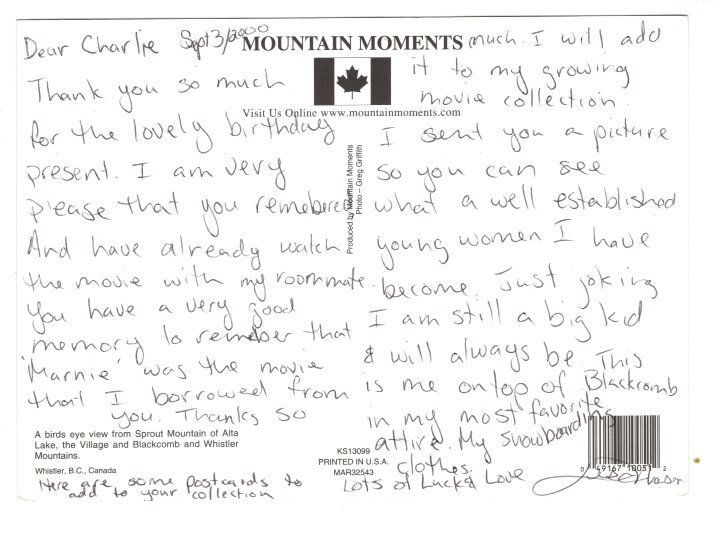 Dear Charlie Sept 3/2000
Thank you so much
for the lovely birthday
present. I am very
please that you remebered
And have already watch
the movie with my roommate.
You have a very good
memory to remeber that
'Marnie' was the movie
that I borrowed from
you. Thanks so
much. I will add
it to my growing
movie collection.
I sent you a picture
so you can see
what a well established
young women I have
become. Just joking
I am still a big kid
& will always be. This
is me on top of Blackcomb
in my most favorite
attire. My snowboarding
clothes.
Lots of Luck & Love
Here are some postcards to
add to your collection
MOUNTAIN MOMENTS
Visit Us Online www.mountainmoments.com
Produced by Mountain Moments
Photo – Greg Griffith
A birds eye view from Sprout Mountain of Alta
Lake, the Village and Blackcomb and Whistler
Mountains.
Whistler, B.C., Canada
KS13099
PRINTED IN U.S.A.
MAR32543
0 49167 10051 2